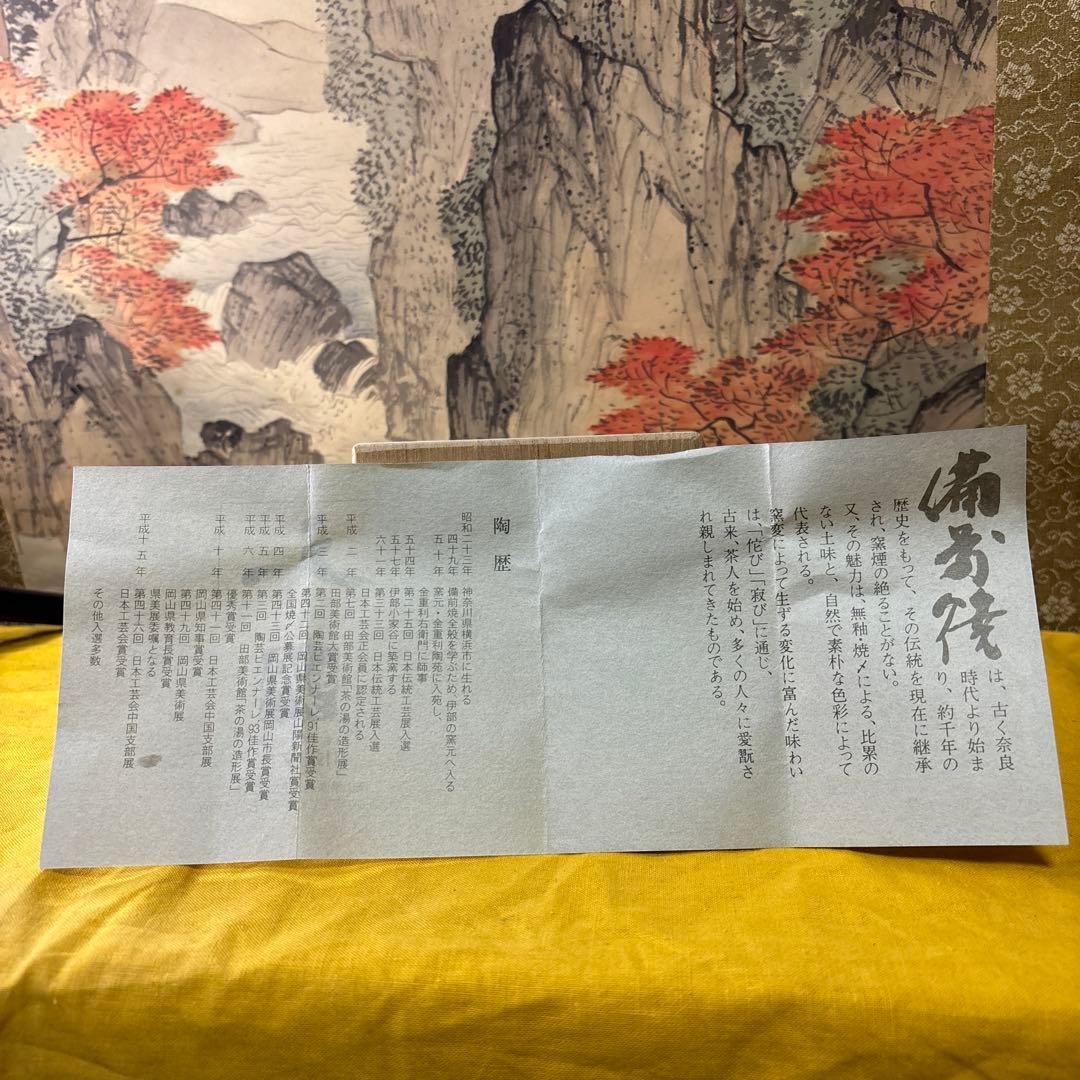 備前焼
は、古く奈良
時代より始ま
り、約千年の
歴史をもって、その伝統を現在に継承
され、窯煙の絶ることがない。
又、その魅力は、無釉・焼〆による、比累の
ない土味と、自然で素朴な色彩によって
代表される。
窯変によって生ずる変化に富んだ味わい
は、「侘び」「寂び」に通じ、
古来、茶人を始め、多くの人々に愛翫さ
れ親しまれてきたものである。
陶歴
昭和二十三年 神奈川県横浜市に生れる
四十九年 備前焼全般を学ぶため、伊部の窯元へ入る
五十年 窯元・金重利陶苑に入苑し、
金重利右衛門に師事
五十四年 第二十五回 日本伝統工芸展入選
五十七年 伊部小家谷に築窯する
六十一年 第三十三回 日本伝統工芸展入選
日本工芸会正会員に認定される
平成二年 第七回 田部美術館「茶の湯の造形展」
田部美術館大賞受賞
平成三年 第二回 陶芸ビエンナーレ'91佳作賞受賞
第四十二回 岡山県美術展山陽新聞社賞受賞
平成四年 全国焼〆公募展記念賞受賞
第四十三回 岡山県美術展岡山市長賞受賞
平成五年 第三回 陶芸ビエンナーレ'93佳作賞受賞
平成六年 第十一回 田部美術館「茶の湯の造形展」
優秀賞受賞
平成十年 第四十一回 日本工芸会中国支部展
岡山県知事賞受賞
第四十九回 岡山県美術展
岡山県教育長賞受賞
県美展委嘱となる
平成十五年 第四十六回 日本工芸会中国支部展
日本工芸会賞受賞
その他入選多数